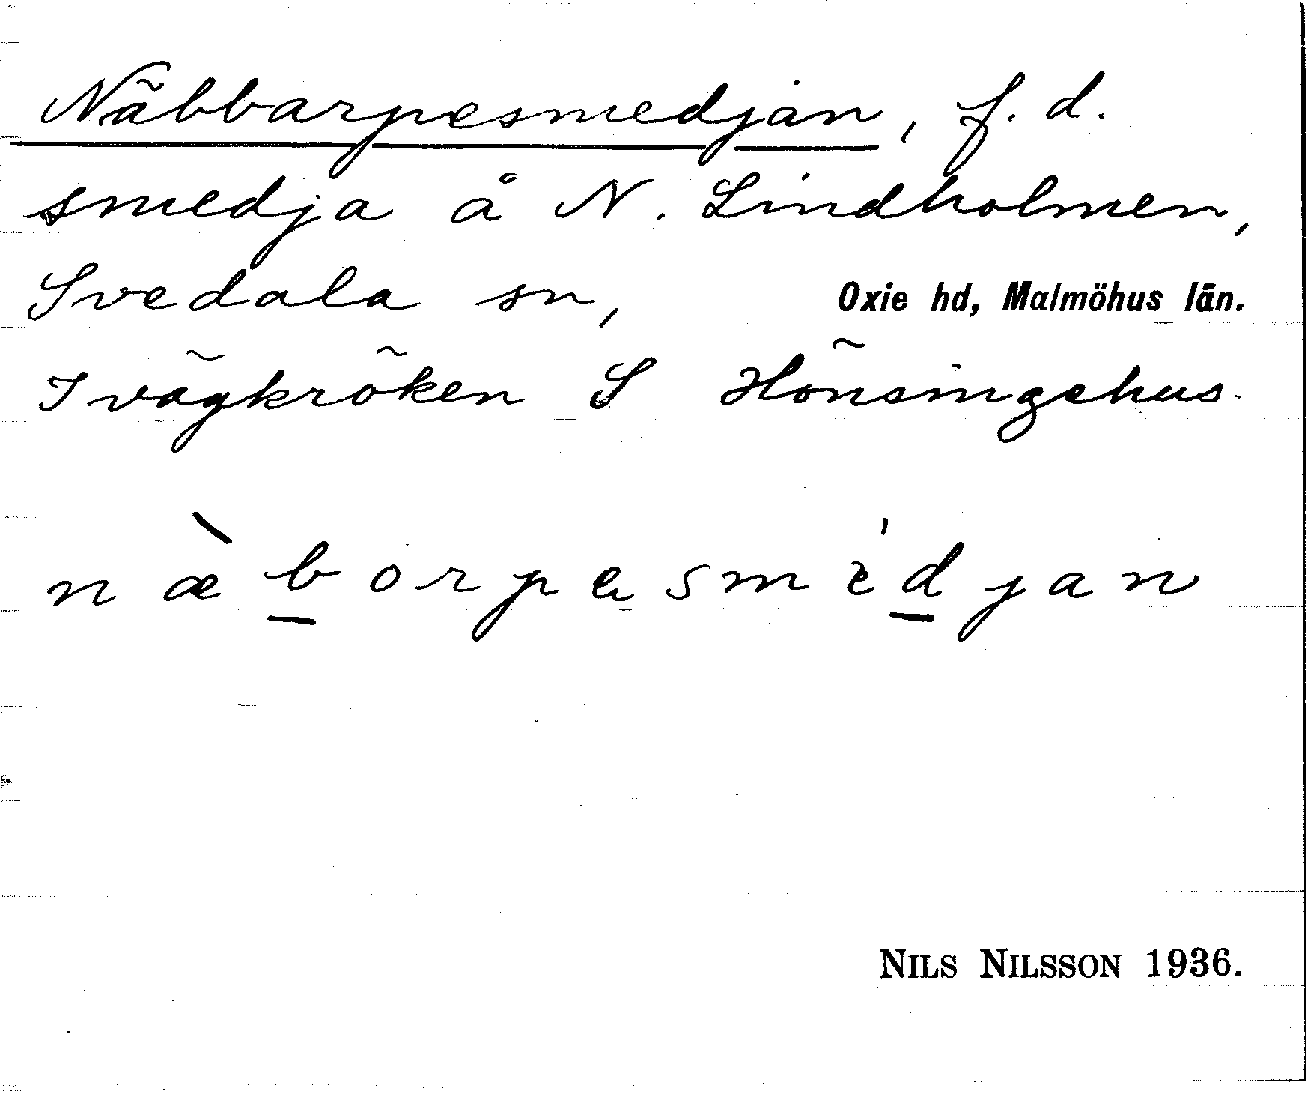 Näbbarpesmedjan, f. d.
smedja å N. Lindholmen,
Svedala sn, Oxie hd, Malmöhus län.
I vägkröken S Hönsingehus.
næ̀borpesmèdjan
NILS NILSSON 1936.